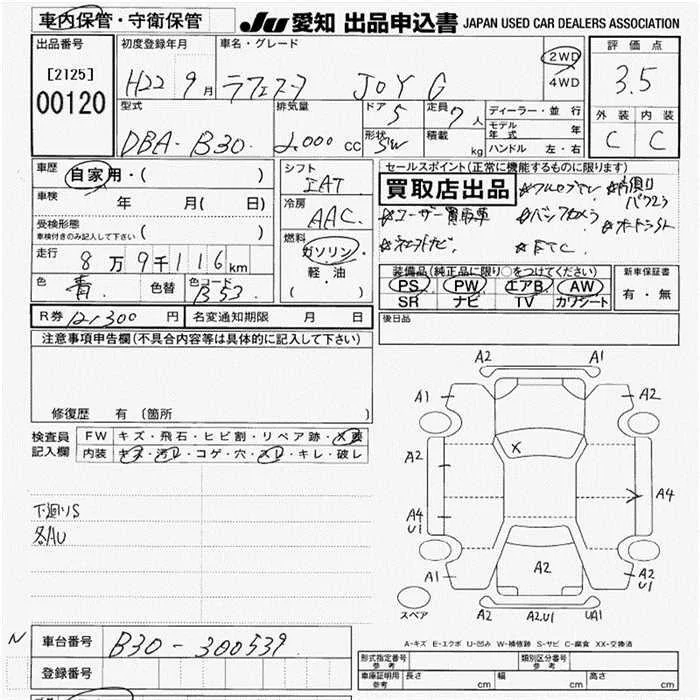 車内保管・守衛保管
JU 愛知 出品申込書 JAPAN USED CAR DEALERS ASSOCIATION
出品番号
[2125]
00120
初度登録年月
車名・グレード
H22 9月
ラフェスタ JOY G
2WD
4WD
評価点
3.5
外装 内装
C C
型式
DBA-B30
排気量
2,000 cc
ドア 5
形状 SW
定員 7人
積載 kg
ディーラー・並行
モデル年式 年
ハンドル 左・右
車歴
自家用・( )
車検 年 月( 日)
受検形態
車検付きのみ記入して下さい ( )
走行 8万9千116km
色 青
色替
色コード B53
シフト
IAT
冷房
AAC
燃料
ガソリン・
軽・油
( )
セールスポイント(正常に機能するものに限ります)
買取店出品
☆ユーザー買取車
☆バックカメラ
☆オートスライド
☆ETC
装備品(純正品に限り○をつけてください)
PS PW エアB AW
SR ナビ TV カワシート
新車保証書
有・無
R券 12,300 円
名変通知期限 月 日
後日品
注意事項申告欄(不具合内容等は具体的に記入して下さい)
修復歴 有 〔箇所 〕
検査員
記入欄
FW キズ・飛石・ヒビ割・リペア跡・X要
内装 キズ・汚レ・コゲ・穴・スレ・キレ・破レ
下廻りS
各AU
A2 A1
A1 A2
X
A2
A4
A4
U1
A2
A1
A2
U1
スペア
A2 A2.U1 UA1
A-キズ E-エクボ U-凹み W-補修跡 S-サビ C-腐食 XX-交換済
N
車台番号 B30-300539
登録番号
形式指定番号
参考
類別区分番号
参考
車庫証明用
参考
長さ cm
幅 cm
高さ cm